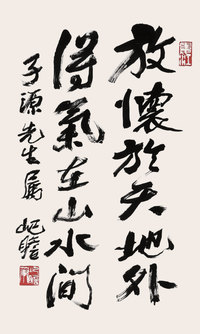 放懷於天地外
得氣在山水間
子源先生属
屺瞻